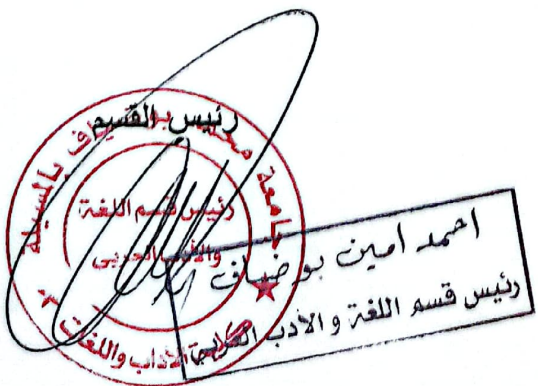 رئيس القسم
جامعة محمد بوضياف بالمسيلة
رئيس قسم اللغة
والأدب العربي
كلية الآداب واللغات
احمد امين بوضياف
رئيس قسم اللغة و الأدب العربي